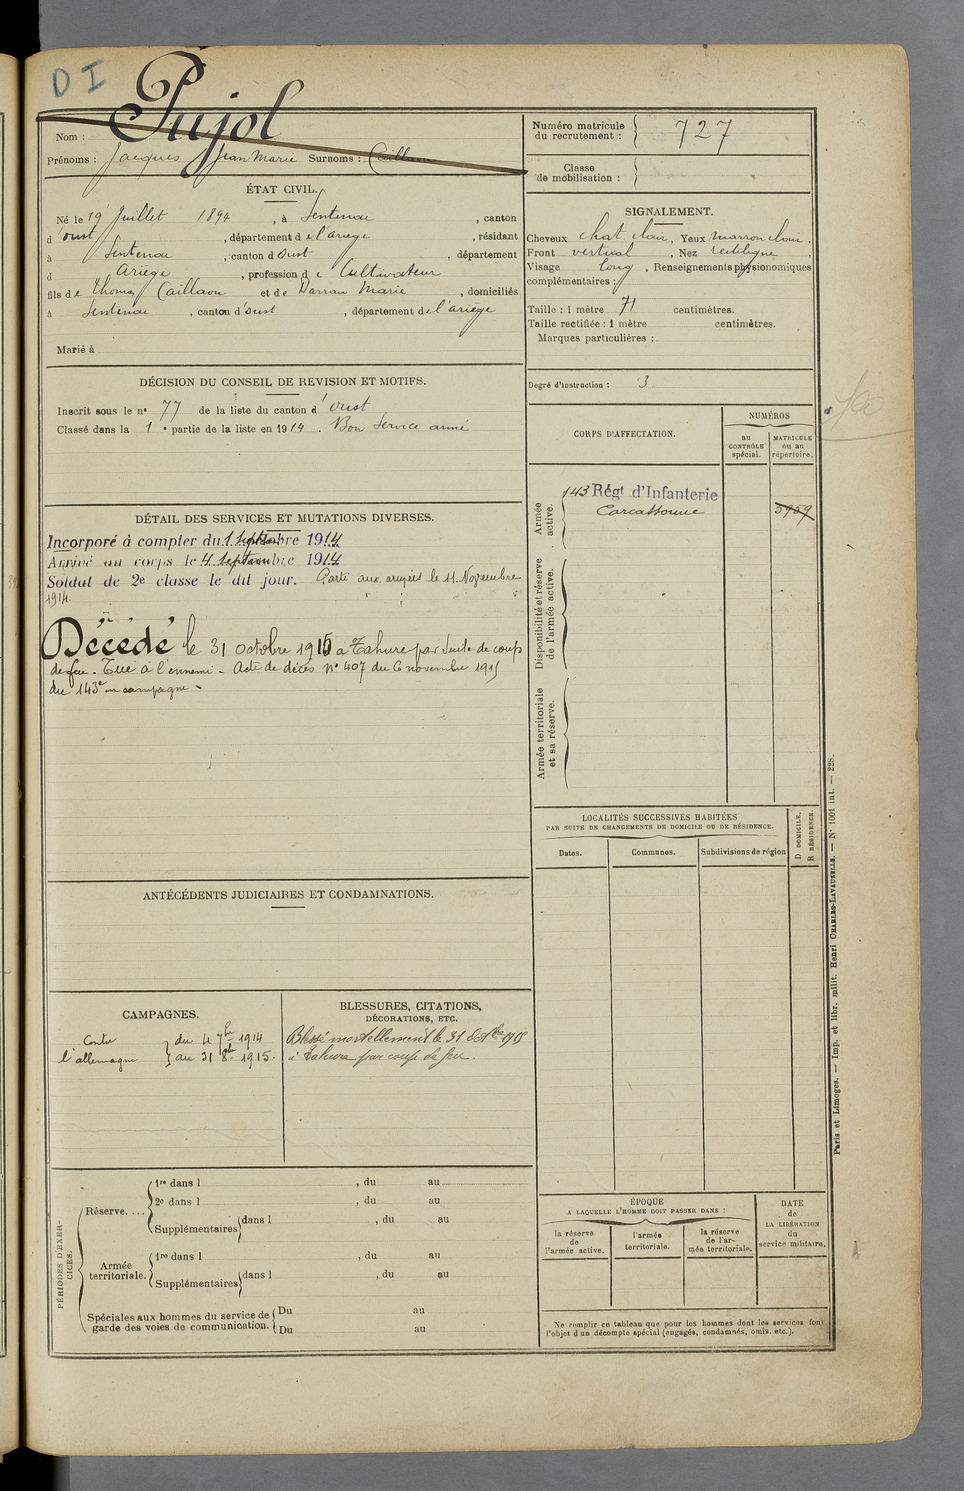 D I
Pujol
Nom :
Prénoms : Jacques Jean Marie Surnoms : Caillaou
Numéro matricule du recrutement : 727
Classe de mobilisation :
ÉTAT CIVIL.
Né le 19 Juillet 1894, à Sentenac, canton
d'oust, département de l'ariège, résidant
à Sentenac, canton d Oust, département
d Ariège, profession de Cultivateur
fils de Thomas Caillaou et de Darrau Marie, domiciliés
à Sentenac, canton d'oust, département de l'ariège
Marié à
SIGNALEMENT.
Cheveux chat. clair, Yeux marron clair,
Front vertical, Nez rectiligne,
Visage long, Renseignements physionomiques
complémentaires :
Taille : 1 mètre 71 centimètres.
Taille rectifiée : 1 mètre centimètres.
Marques particulières :
Degré d'instruction : 3
DÉCISION DU CONSEIL DE REVISION ET MOTIFS.
Inscrit sous le nº 77 de la liste du canton d'oust
Classé dans la 1e partie de la liste en 1914. Bon Service armé
CORPS D'AFFECTATION.
NUMÉROS
au CONTRÔLE spécial.
MATRICULE ou au répertoire.
Armée active.
143 Régt d'Infanterie
Carcassonne
5959
Disponibilité et réserve de l'armée active.
Armée territoriale et sa réserve.
DÉTAIL DES SERVICES ET MUTATIONS DIVERSES.
Incorporé à compter du 1 septembre 1914
Arrivé au corps le 4 septembre 1914
Soldat de 2e classe le dit jour. Parti aux armées le 11 Novembre
1914.
Décédé le 31 octobre 1915 à Tahure par suite de coup
de feu. Tué à l'ennemi - Acte de décès Nº 407 du 6 novembre 1915
du 143e en campagne -
LOCALITÉS SUCCESSIVES HABITÉES
PAR SUITE DE CHANGEMENTS DE DOMICILE OU DE RÉSIDENCE.
Dates.
Communes.
Subdivisions de région
D DOMICILE.
R RÉSIDENCE.
ANTÉCÉDENTS JUDICIAIRES ET CONDAMNATIONS.
CAMPAGNES.
Contre l'allemagne
du 4 7bre 1914
au 31 8bre 1915.
BLESSURES, CITATIONS,
DÉCORATIONS, ETC.
Blessé mortellement le 31 Octobre 1915
à Tahure par coup de feu.
PÉRIODES D'EXERCICES.
Réserve....
1re dans l , du au
2e dans l , du au
Supplémentaires dans l , du au
Armée territoriale.
1re dans l , du au
Supplémentaires dans l , du au
Spéciales aux hommes du service de garde des voies de communication.
Du au
Du au
ÉPOQUE
A LAQUELLE L'HOMME DOIT PASSER DANS :
la réserve de l'armée active.
l'armée territoriale.
la réserve de l'armée territoriale.
DATE de LA LIBÉRATION du service militaire.
Ne remplir ce tableau que pour les hommes dont les services font
l'objet d'un décompte spécial (engagés, condamnés, omis, etc.).
Paris et Limoges. — Imp. et libr. milit. Henri CHARLES-LAVAUZELLE. — Nº 1001 int. — 228.